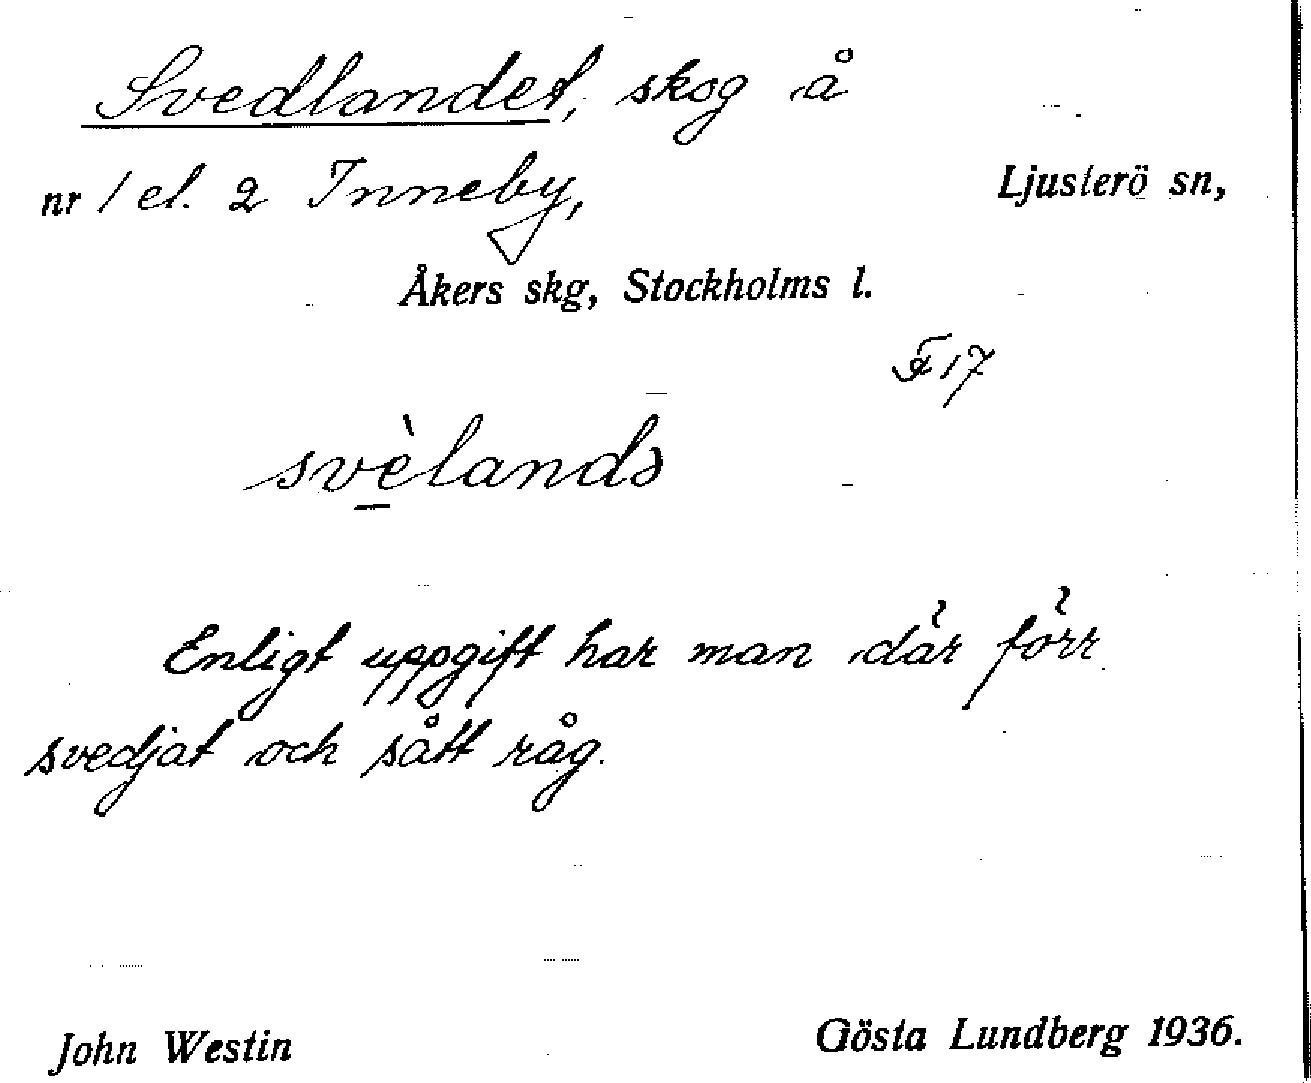 Svedlandet, skog å
nr 1 el. 2 Inneby, Ljusterö sn,
Åkers skg, Stockholms l.
F 17
svèlandə
Enligt uppgift har man där förr
svedjat och sått råg.
John Westin Gösta Lundberg 1936.